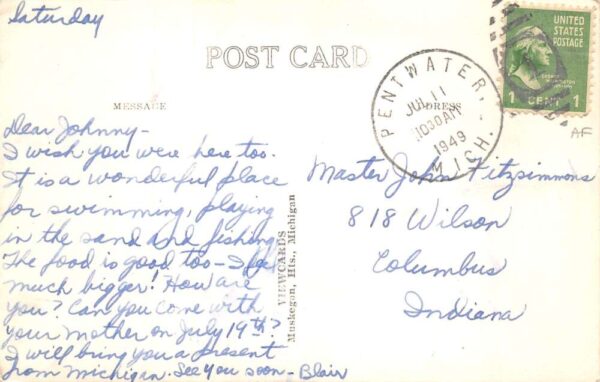 Saturday
POST CARD
UNITED
STATES
POSTAGE
1 CENT 1
PENTWATER, MICH.
JUL 11
1030AM
1949
MESSAGE
ADDRESS
AF
Dear Johnny-
I wish you were here too.
It is a wonderful place
for swimming, playing
in the sand and fishing.
The food is good too - I feel
much bigger! How are
you? Can you come with
your Mother on July 19th?
I will bring you a present
from Michigan. See you soon - Blair
VIEWCARDS
Muskegon, Hts., Michigan
Master John Fitzsimmons
818 Wilson
Columbus
Indiana